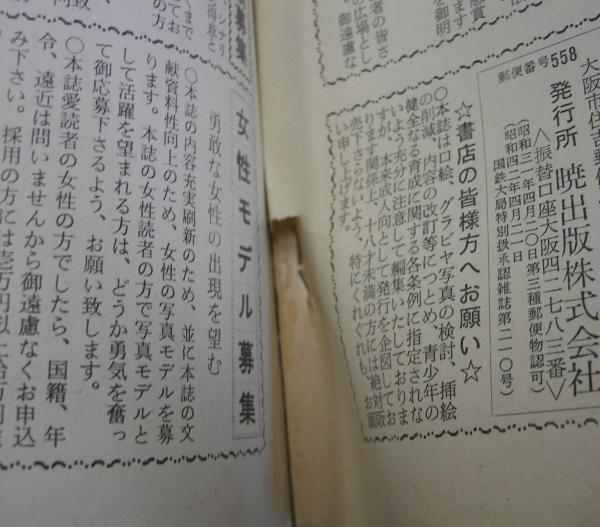 者の皆さ
の広場とし
御遠慮な
郵便番号558
大阪市住吉郵便
発行所 暁出版株式会社
＜振替口座大阪四二七八三番＞
（昭和三一年四月二〇日第三種郵便物認可）
（昭和四二年四月二一日
国鉄大局特別扱承認雑誌第二一〇号）
☆書店の皆様方へお願い☆
○本誌は口絵、グラビヤ写真の検討、挿絵
の削減、内容の改訂等につとめ、青少年の
健全なる育成に関する各条例に指定されな
いよう充分に注意して編集いたしておりま
すが、本来成人向として発行を企図してお
ります関係上、十八才未満の方には絶対販
売下さらないよう、特にくれぐれも、お願
い申し上げます。
募集
女性モデル募集
勇敢な女性の出現を望む
○本誌の内容充実刷新のため、並に本誌の文
献資料性向上のため、女性の写真モデルを募
ります。本誌の女性読者の方で写真モデルと
して活躍を望まれる方は、どうか勇気を奮っ
て御応募下さるよう、お願い致します。
○本誌愛読者の女性の方でしたら、国籍、年
令、遠近は問いませんから御遠慮なくお申込
み下さい。採用の方には壱万円以上